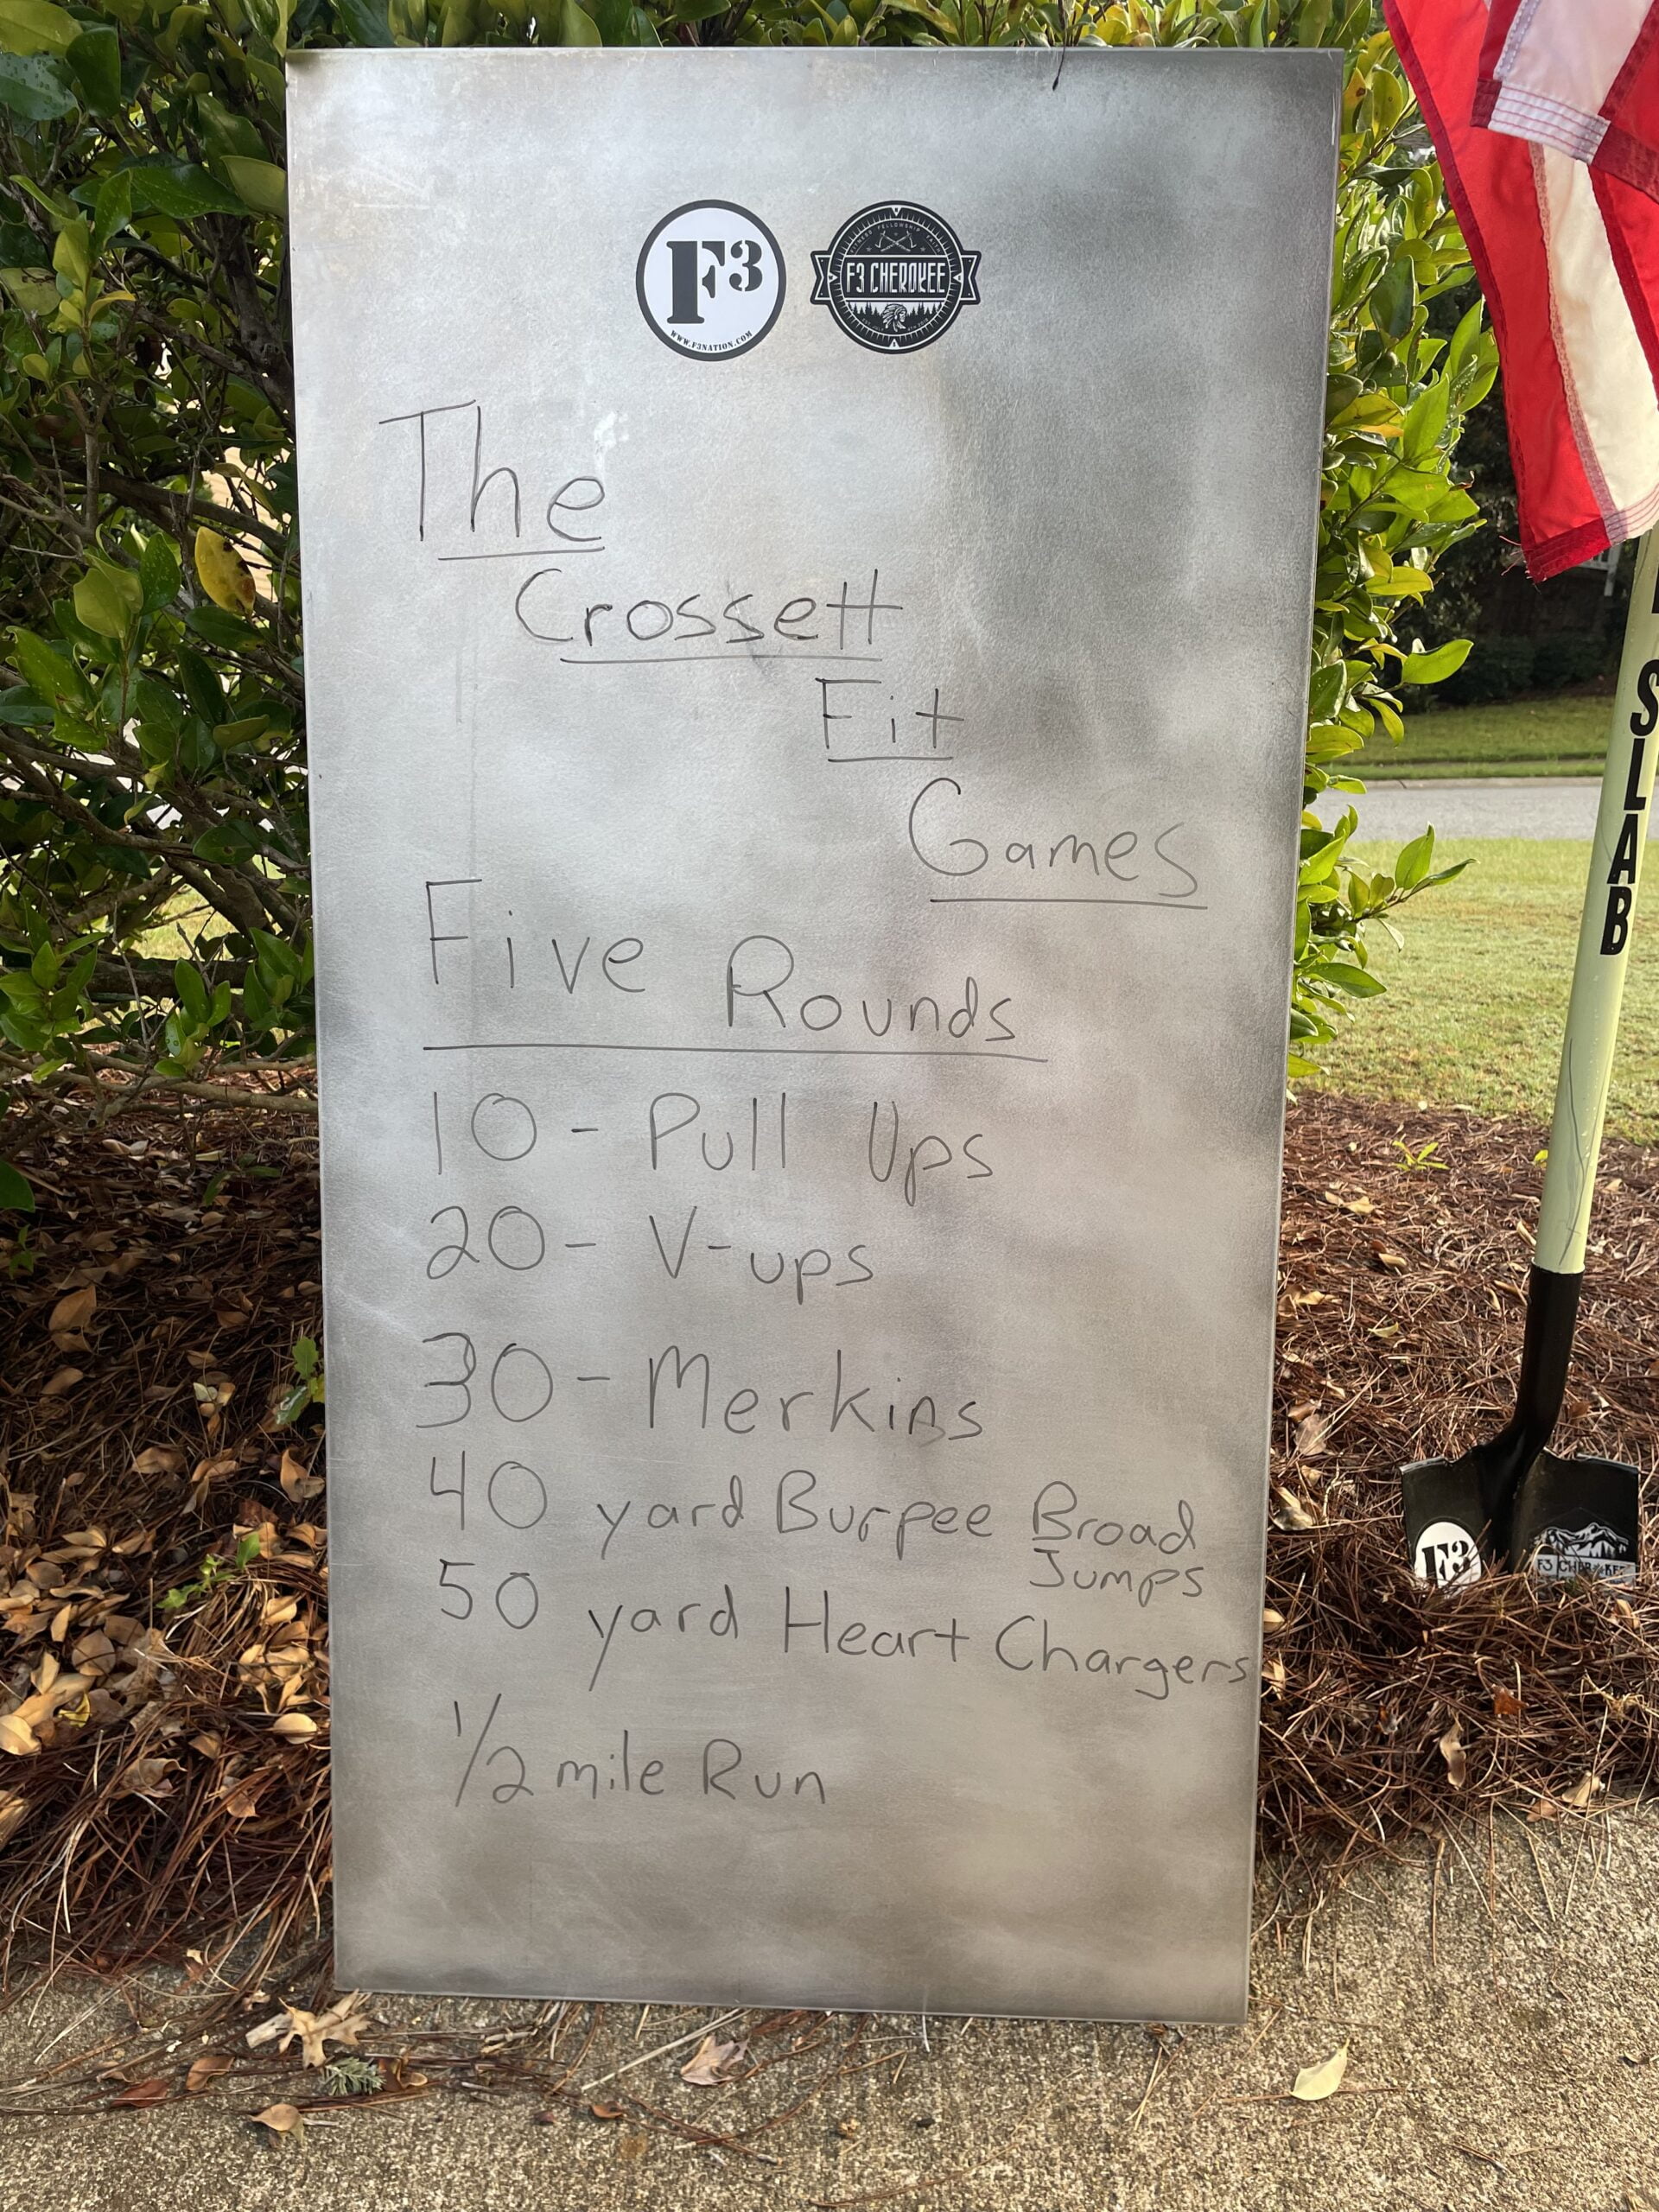 F3
WWW.F3NATION.COM
FITNESS FELLOWSHIP FAITH
F3 CHEROKEE
The
Crossett
Fit
Games
Five Rounds
10 - Pull Ups
20 - V-ups
30 - Merkins
40 yard Burpee Broad
Jumps
50 yard Heart Chargers
1/2 mile Run
SLAB
F3
F3 CHEROKEE